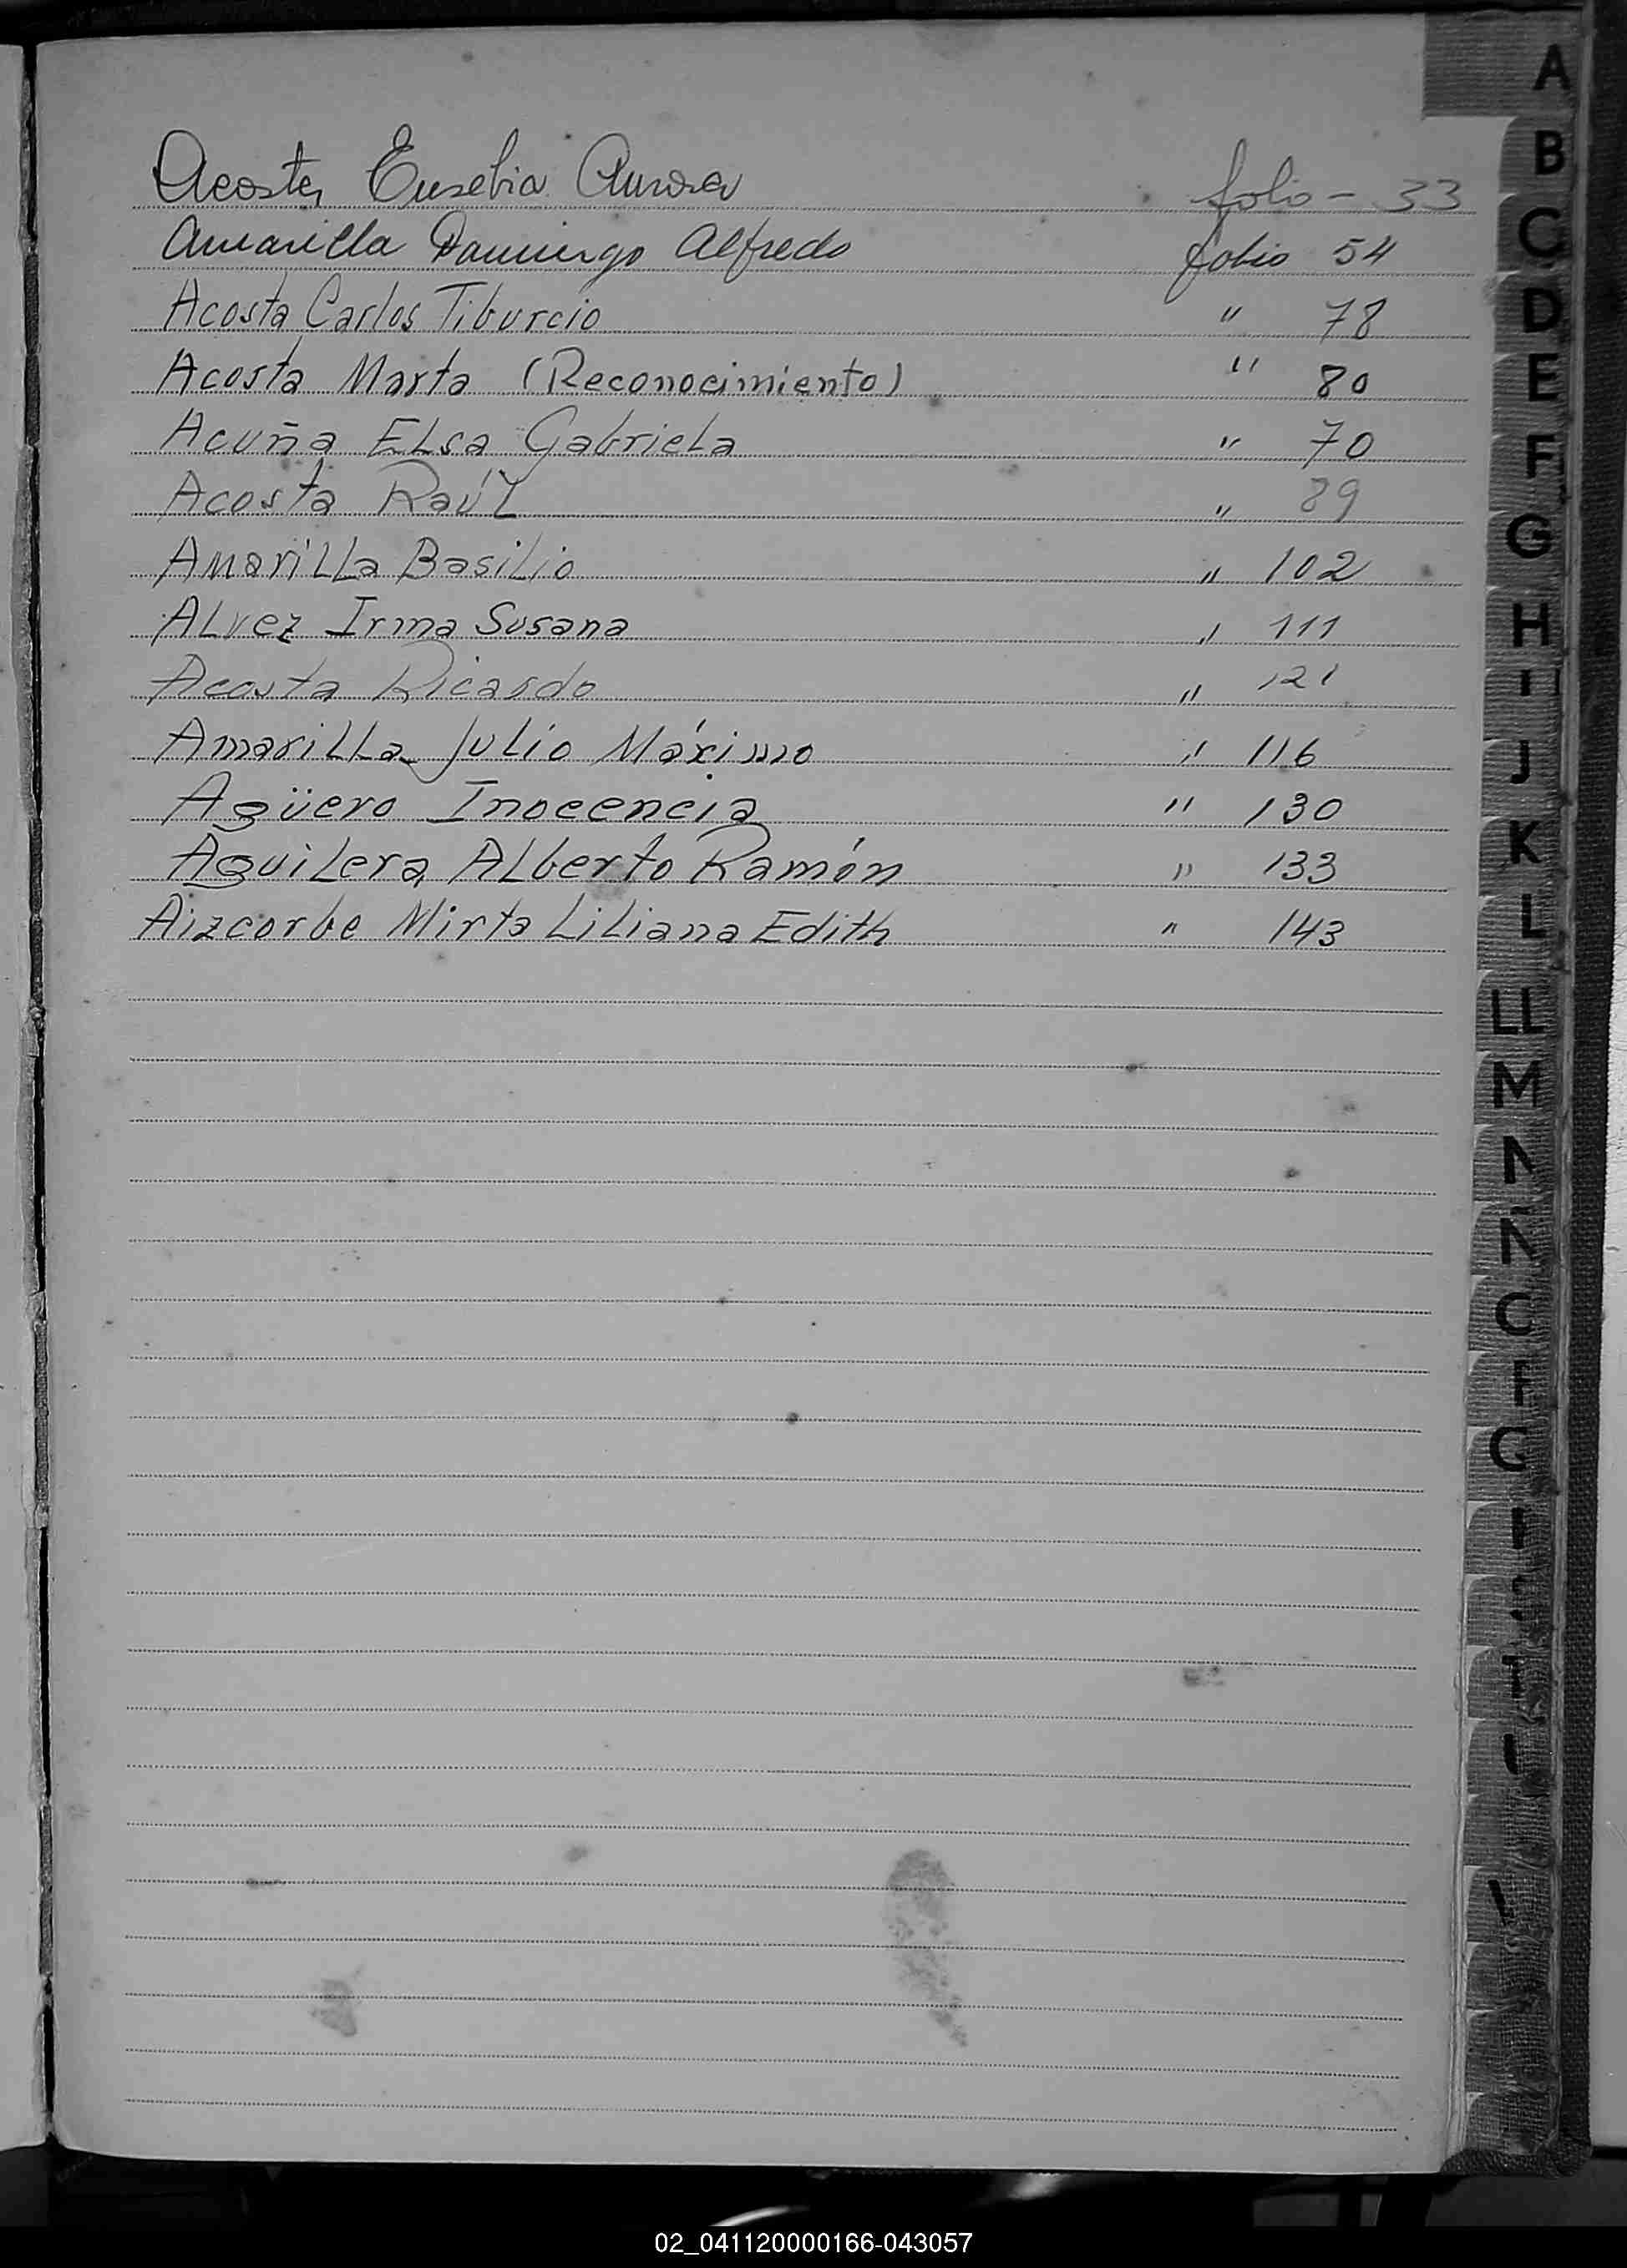 Acosta Eusebia Aurora folio - 33
Amarilla Domingo Alfredo folio 54
Acosta Carlos Tiburcio " 78
Acosta Marta (Reconocimiento) " 80
Acuña Elsa Gabriela " 70
Acosta Raúl " 89
Amarilla Basilio " 102
Alvez Irma Susana " 111
Acosta Ricardo " 121
Amarilla Julio Máximo " 116
Agüero Inocencia " 130
Aguilera Alberto Ramón " 133
Aizcorbe Mirta Liliana Edith " 143
A
B
C
D
E
F
G
H
I
J
K
L
LL
M
N
Ñ
02_041120000166-043057